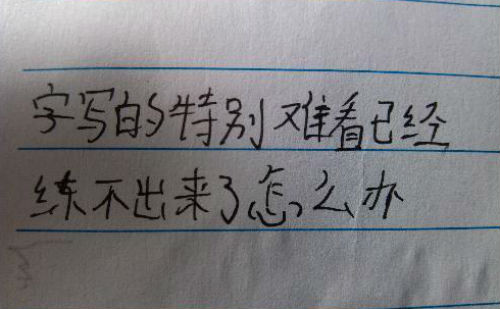 字写的特别难看已经
练不出来了怎么办